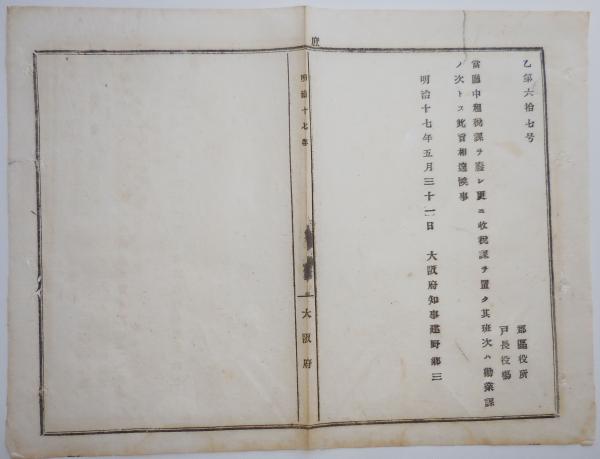 乙第六拾七号
郡區役所
戸長役塲
當廳中租税課ヲ廢シ更ニ收税課ヲ置ク其班次ハ勸業課
ノ次トス此旨相達候事
明治十七年五月三十一日 大阪府知事建野郷三
府
明治十七年
大阪府